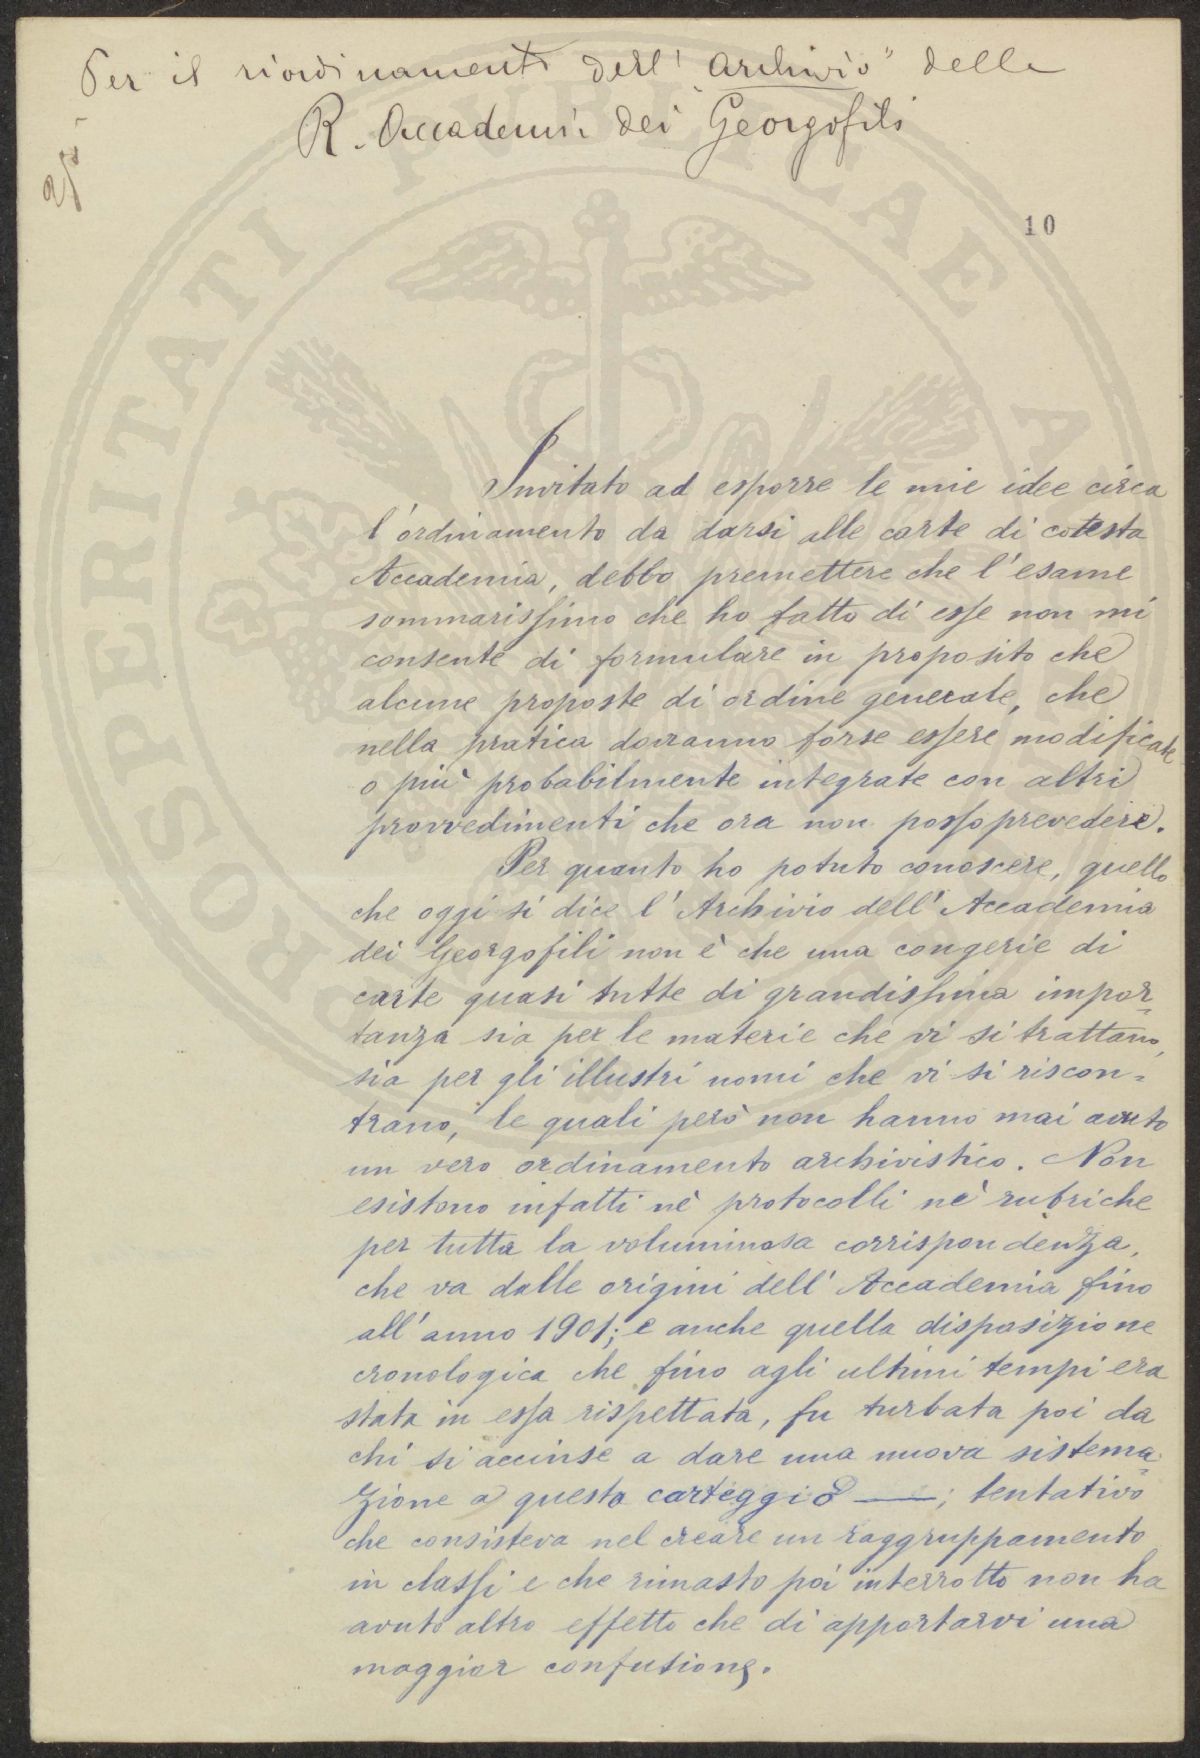 Per il riordinamento dell' "archivio" della
R. Accademia dei Georgofili
10
PROSPERITATI PUBLICAE A
Invitato ad esporre le mie idee circa
l'ordinamento da darsi alle carte di cotesta
Accademia, debbo premettere che l'esame
sommarissimo che ho fatto di esse non mi
consente di formulare in proposito che
alcune proposte di ordine generale, che
nella pratica dovranno forse essere modificate
o più probabilmente integrate con altri
provvedimenti che ora non posso prevedere.
Per quanto ho potuto conoscere, quello
che oggi si dice l'Archivio dell'Accademia
dei Georgofili non è che una congerie di
carte quasi tutte di grandissima impor=
tanza sia per le materie che vi si trattano,
sia per gli illustri nomi che vi si riscon=
trano, le quali però non hanno mai avuto
un vero ordinamento archivistico. Non
esistono infatti nè protocolli nè rubriche
per tutta la voluminosa corrispondenza,
che va dalle origini dell'Accademia fino
all'anno 1901; e anche quella disposizione
cronologica che fino agli ultimi tempi era
stata in essa rispettata, fu turbata poi da
chi si accinse a dare una nuova sistema=
zione a questo carteggio —; tentativo
che consisteva nel creare un raggruppamento
in classi e che rimasto poi interrotto non ha
avuto altro effetto che di apportarvi una
maggior confusione.